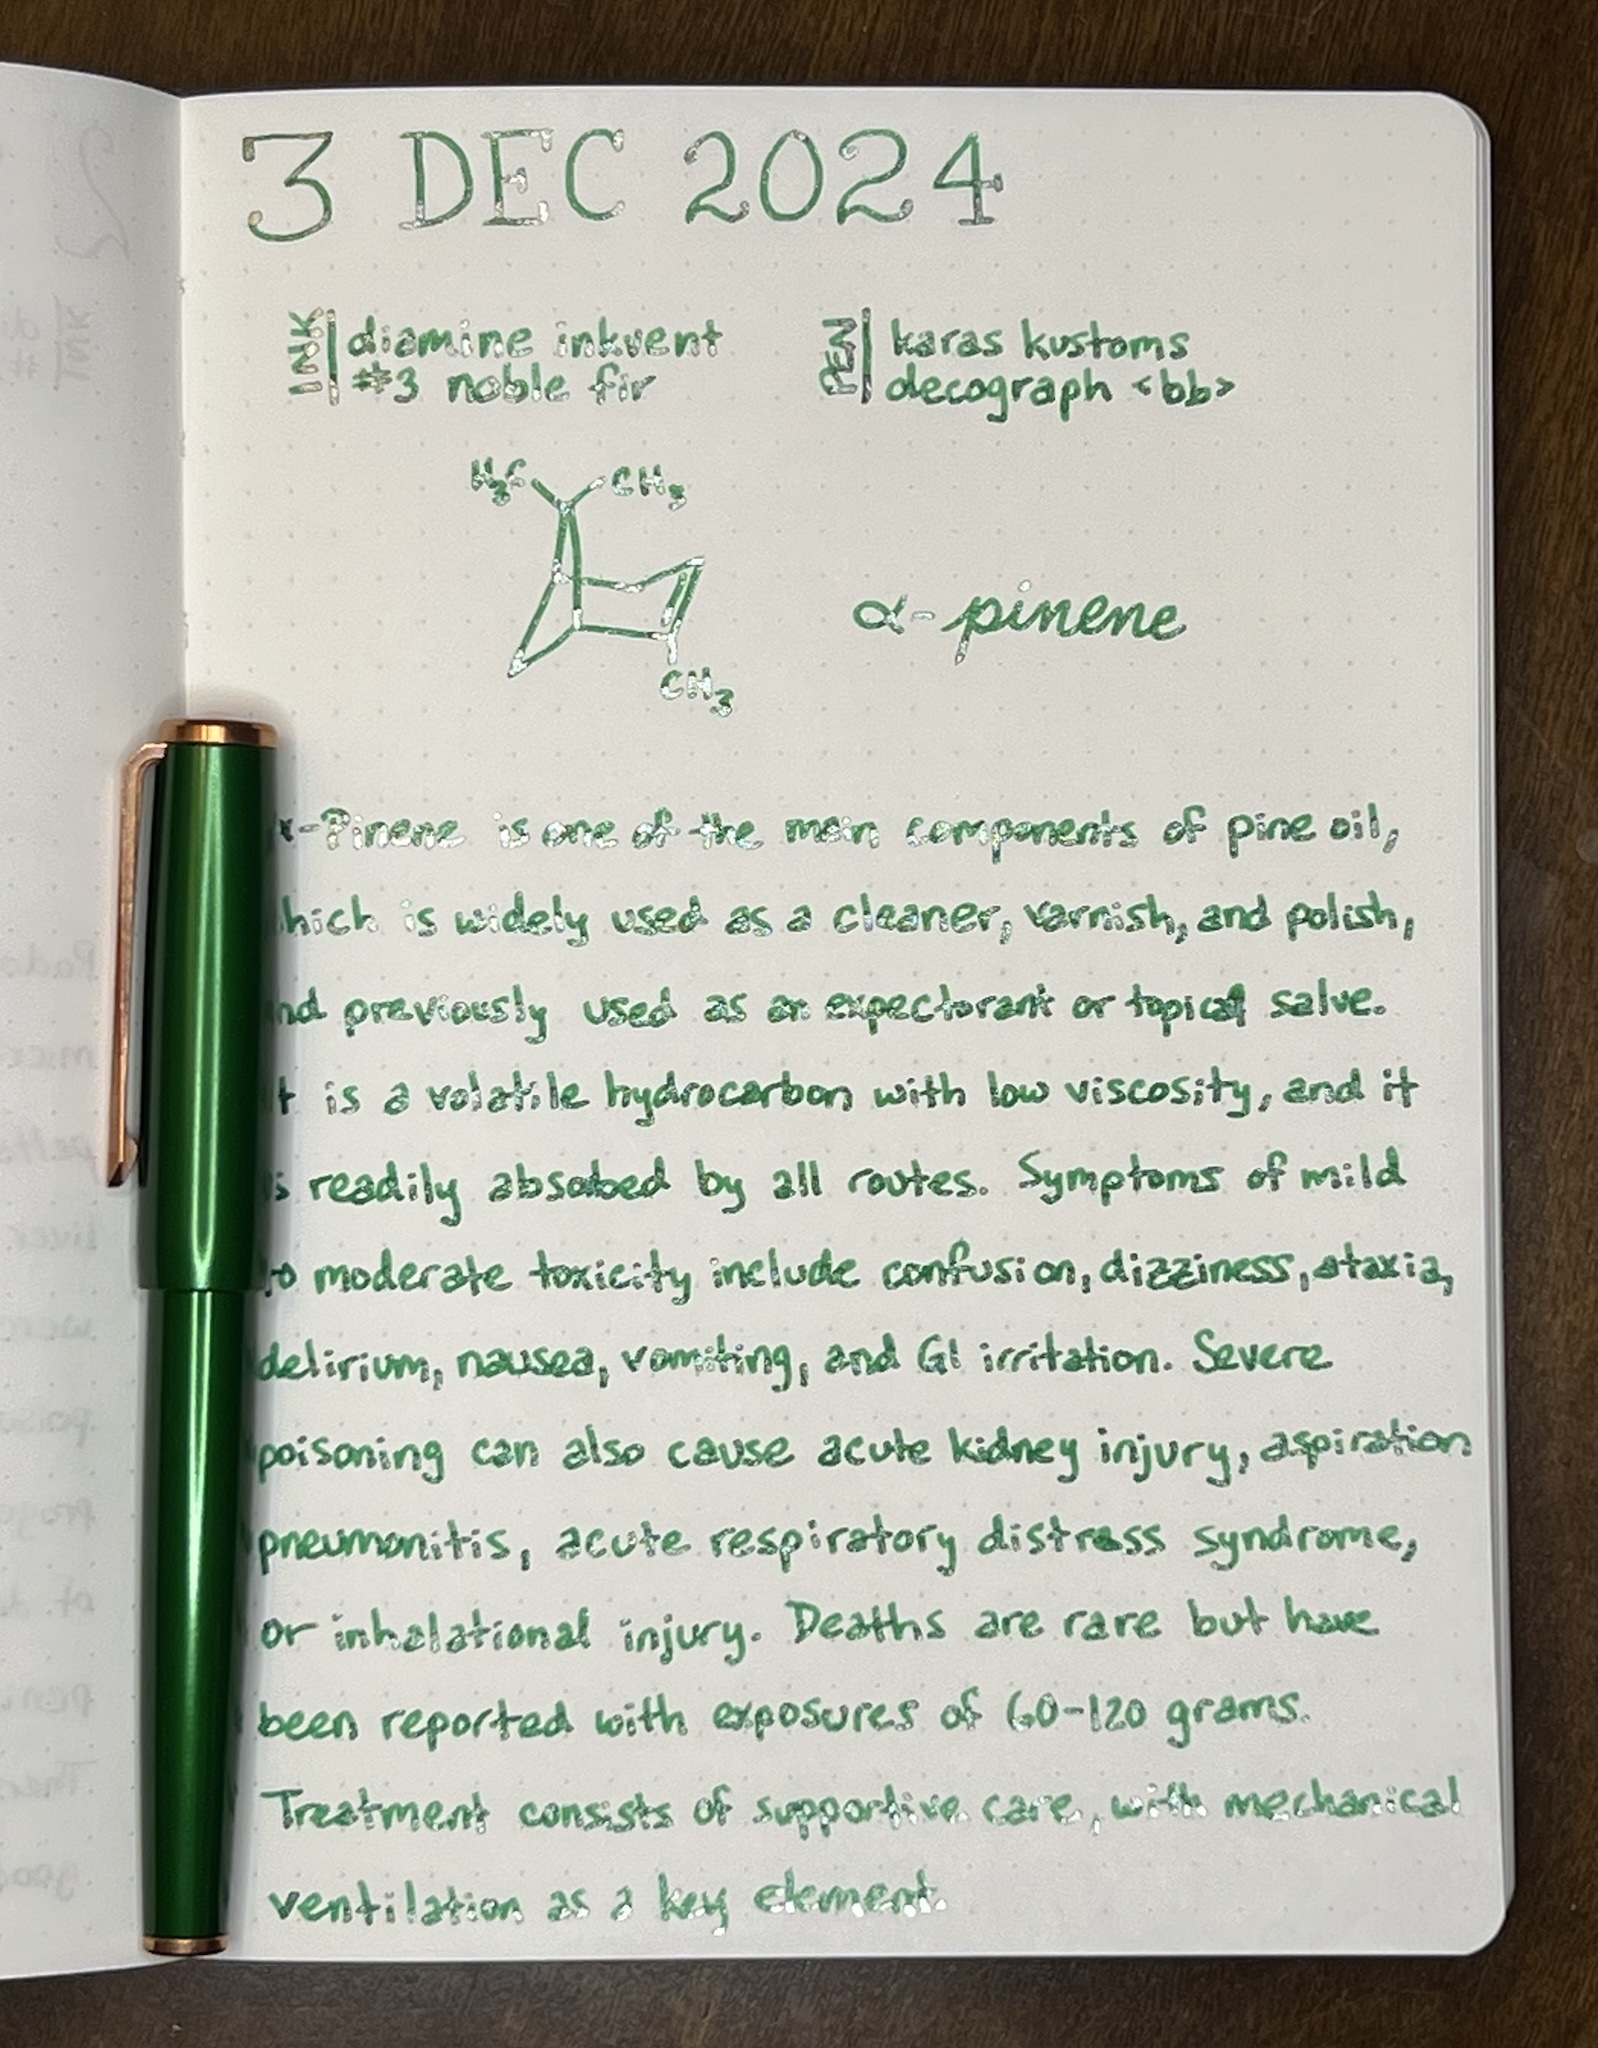 3 DEC 2024
INK | diamine inkvent
#3 noble fir
PEN | karas kustoms
decograph <bb>
H₃C CH₃
α-pinene
CH₃
-Pinene is one of the main components of pine oil,
hich is widely used as a cleaner, varnish, and polish,
nd previously used as an expectorant or topical salve.
t is a volatile hydrocarbon with low viscosity, and it
s readily absobed by all routes. Symptoms of mild
to moderate toxicity include confusion, dizziness, ataxia,
delirium, nausea, vomiting, and GI irritation. Severe
poisoning can also cause acute kidney injury, aspiration
pneumonitis, acute respiratory distress syndrome,
or inhalational injury. Deaths are rare but have
been reported with exposures of 60-120 grams.
Treatment consists of supportive care, with mechanical
ventilation as a key element.